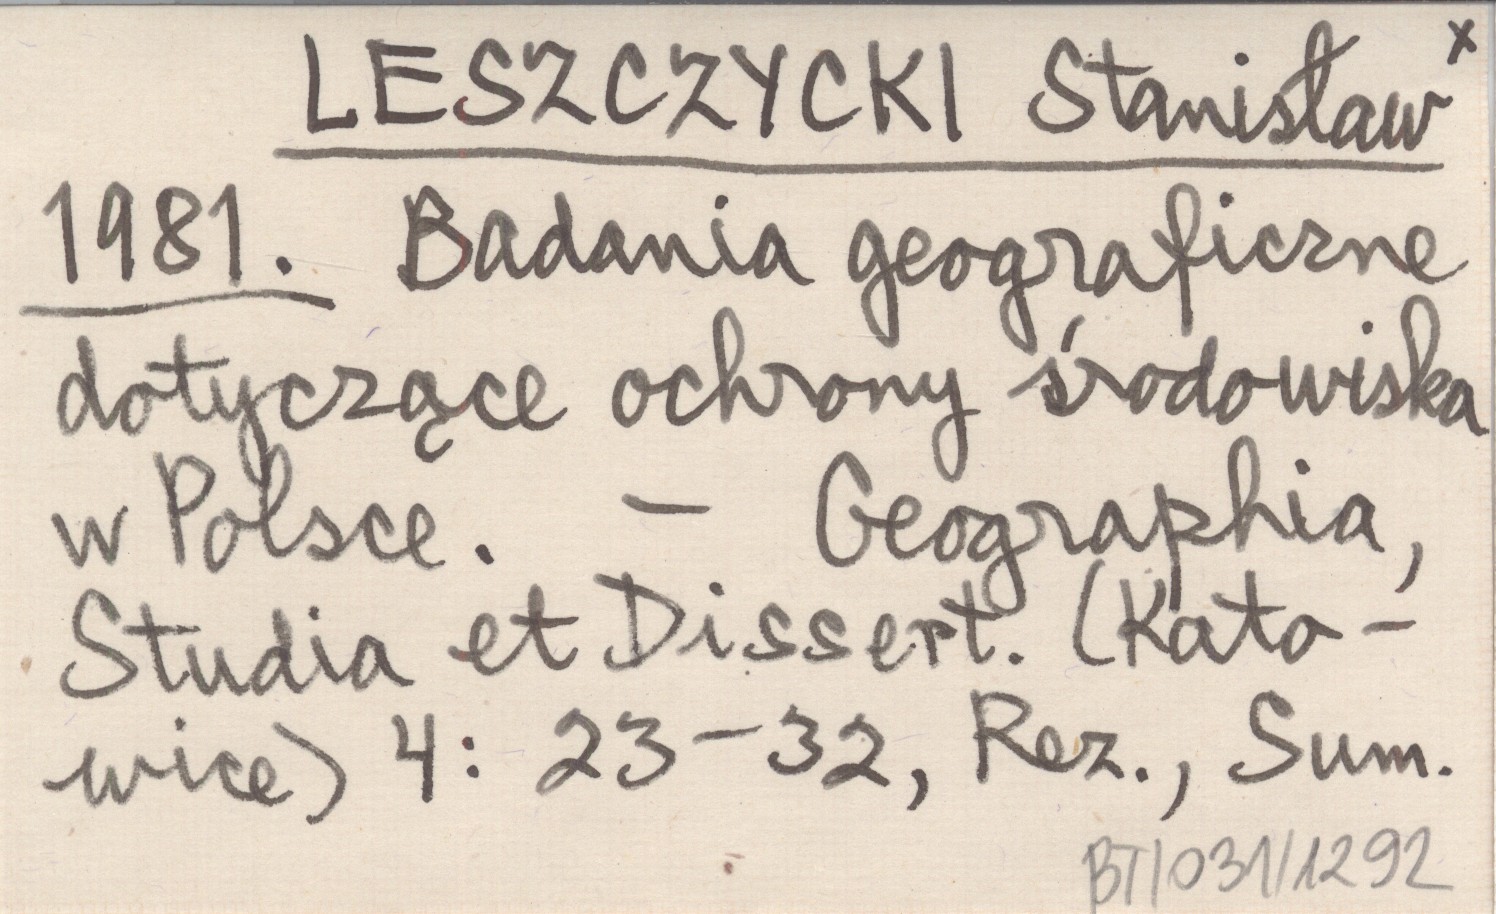 LESZCZYCKI Stanisław x
1981. Badania geograficzne
dotyczące ochrony środowiska
w Polsce. — Geographia,
Studia et Dissert. (Kato-
wice) 4: 23-32, Rez., Sum.
BT/031/1292